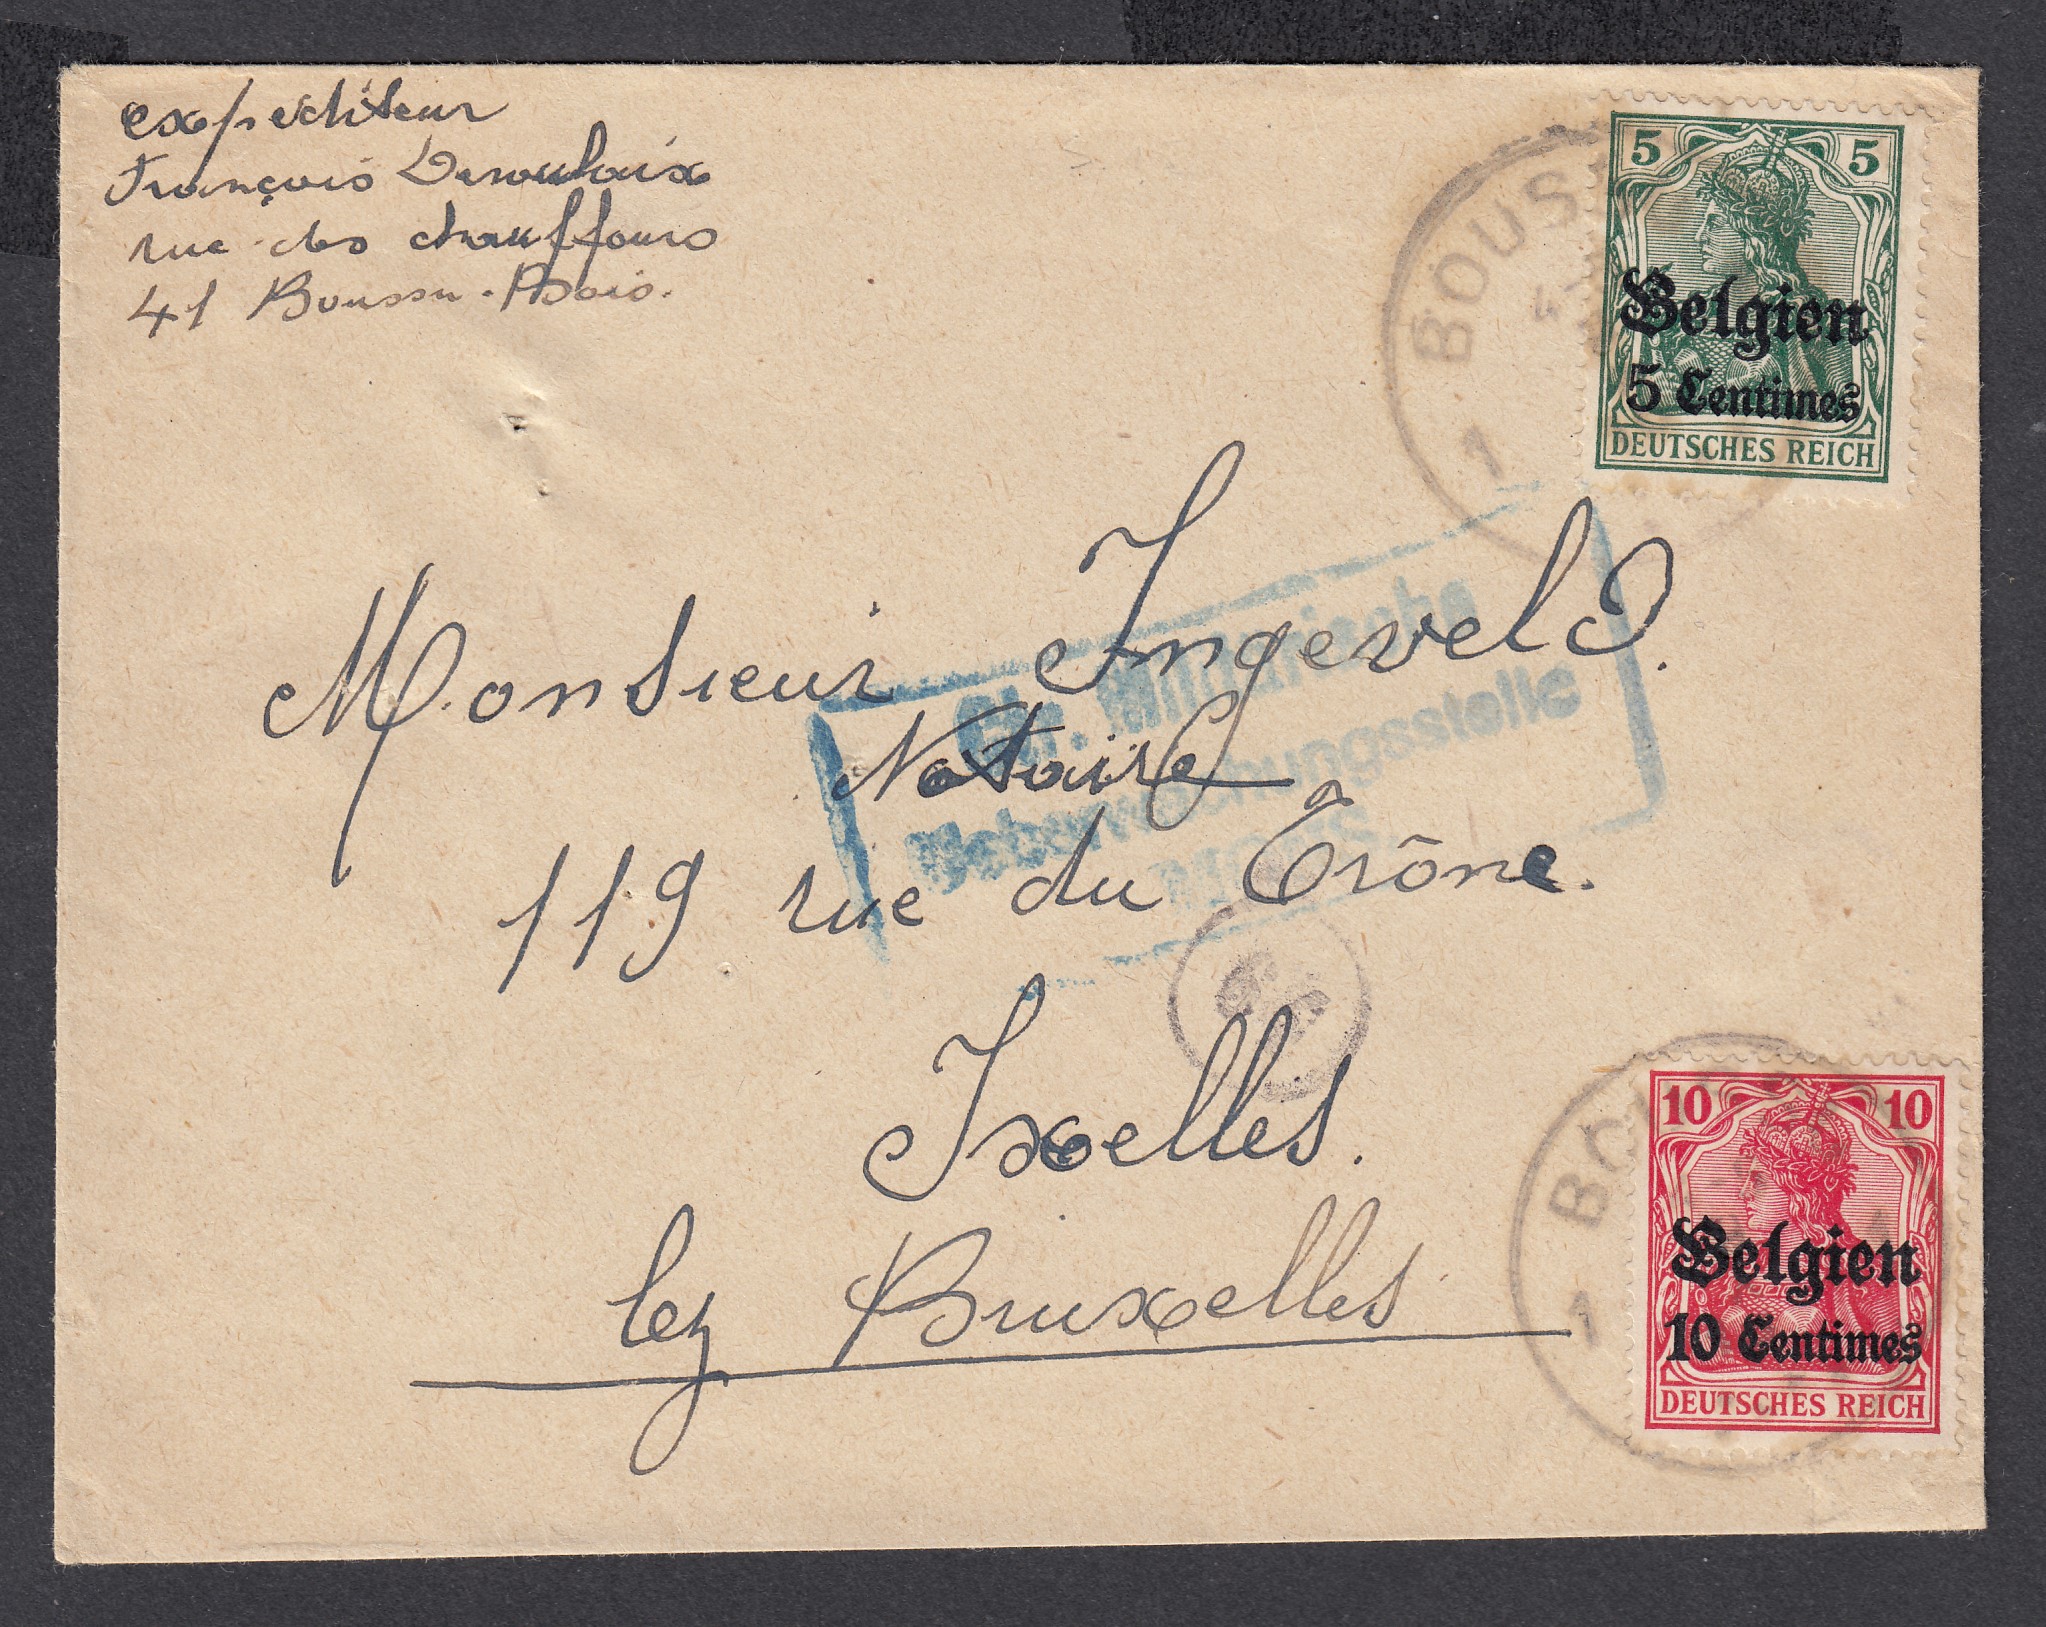 expéditeur
François
rue des chauffours
41 Boussu-Bois.
BOUS
1
5 5
Belgien
5 Centimes
DEUTSCHES REICH
Monsieur Ingeveld.
Notaire
119 rue du Trône.
Ixelles.
lez Bruxelles
Militärische
Ueberwachungsstelle
MONS
BO
1
10 10
Belgien
10 Centimes
DEUTSCHES REICH